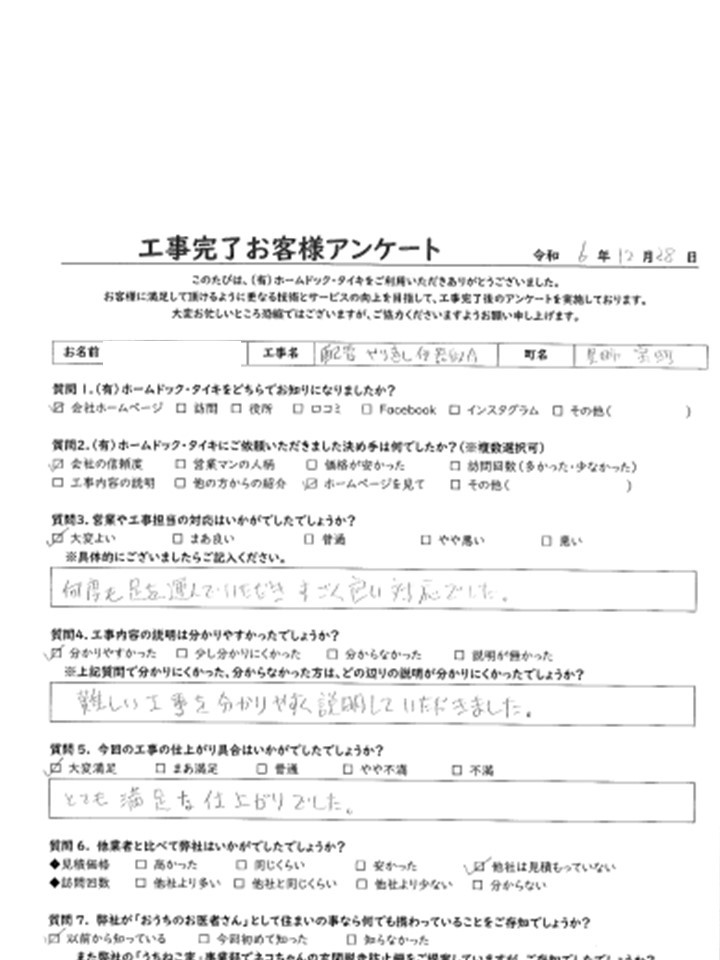 工事完了お客様アンケート 令和 6 年 12 月 28 日
このたびは、(有)ホームドック・タイキをご利用いただきありがとうございました。
お客様に満足して頂けるように更なる技術とサービスの向上を目指して、工事完了後のアンケートを実施しております。
大変お忙しいところ恐縮ではございますが、ご協力くださいますようお願い申し上げます。
お名前 工事名 配管やりかえ 町名
質問 1.(有)ホームドック・タイキをどちらでお知りになりましたか?
☑ 会社ホームページ □ 訪問 □ 役所 □ 口コミ □ Facebook □ インスタグラム □ その他( )
質問2.(有)ホームドック・タイキにご依頼いただきました決め手は何でしたか?(※複数選択可)
☑ 会社の信頼度 □ 営業マンの人柄 □ 価格が安かった □ 訪問回数(多かった・少なかった)
□ 工事内容の説明 □ 他の方からの紹介 ☑ ホームページを見て □ その他( )
質問3.営業や工事担当の対応はいかがでしたでしょうか?
☑ 大変よい □ まあ良い □ 普通 □ やや悪い □ 悪い
※具体的にございましたらご記入ください。
何度も足を運んでいただき すごく良い対応でした。
質問4.工事内容の説明は分かりやすかったでしょうか?
☑ 分かりやすかった □ 少し分かりにくかった □ 分からなかった □ 説明が無かった
※上記質問で分かりにくかった、分からなかった方は、どの辺りの説明が分かりにくかったでしょうか?
難しい工事を分かりやすく説明していただきました。
質問 5. 今回の工事の仕上がり具合はいかがでしたでしょうか?
☑ 大変満足 □ まあ満足 □ 普通 □ やや不満 □ 不満
とても満足な仕上がりでした。
質問 6. 他業者と比べて弊社はいかがでしたでしょうか?
◆見積価格 □ 高かった □ 同じくらい □ 安かった ☑ 他社は見積もっていない
◆訪問回数 □ 他社より多い □ 他社と同じくらい □ 他社より少ない □ 分からない
質問 7. 弊社が「おうちのお医者さん」として住まいの事なら何でも携わっていることをご存知でしょうか?
☑ 以前から知っている □ 今回初めて知った □ 知らなかった
また弊社の「うちねこ家」事業部でネコちゃんの玄関脱走防止柵をご提案していますが、ご存知でしたでしょうか?